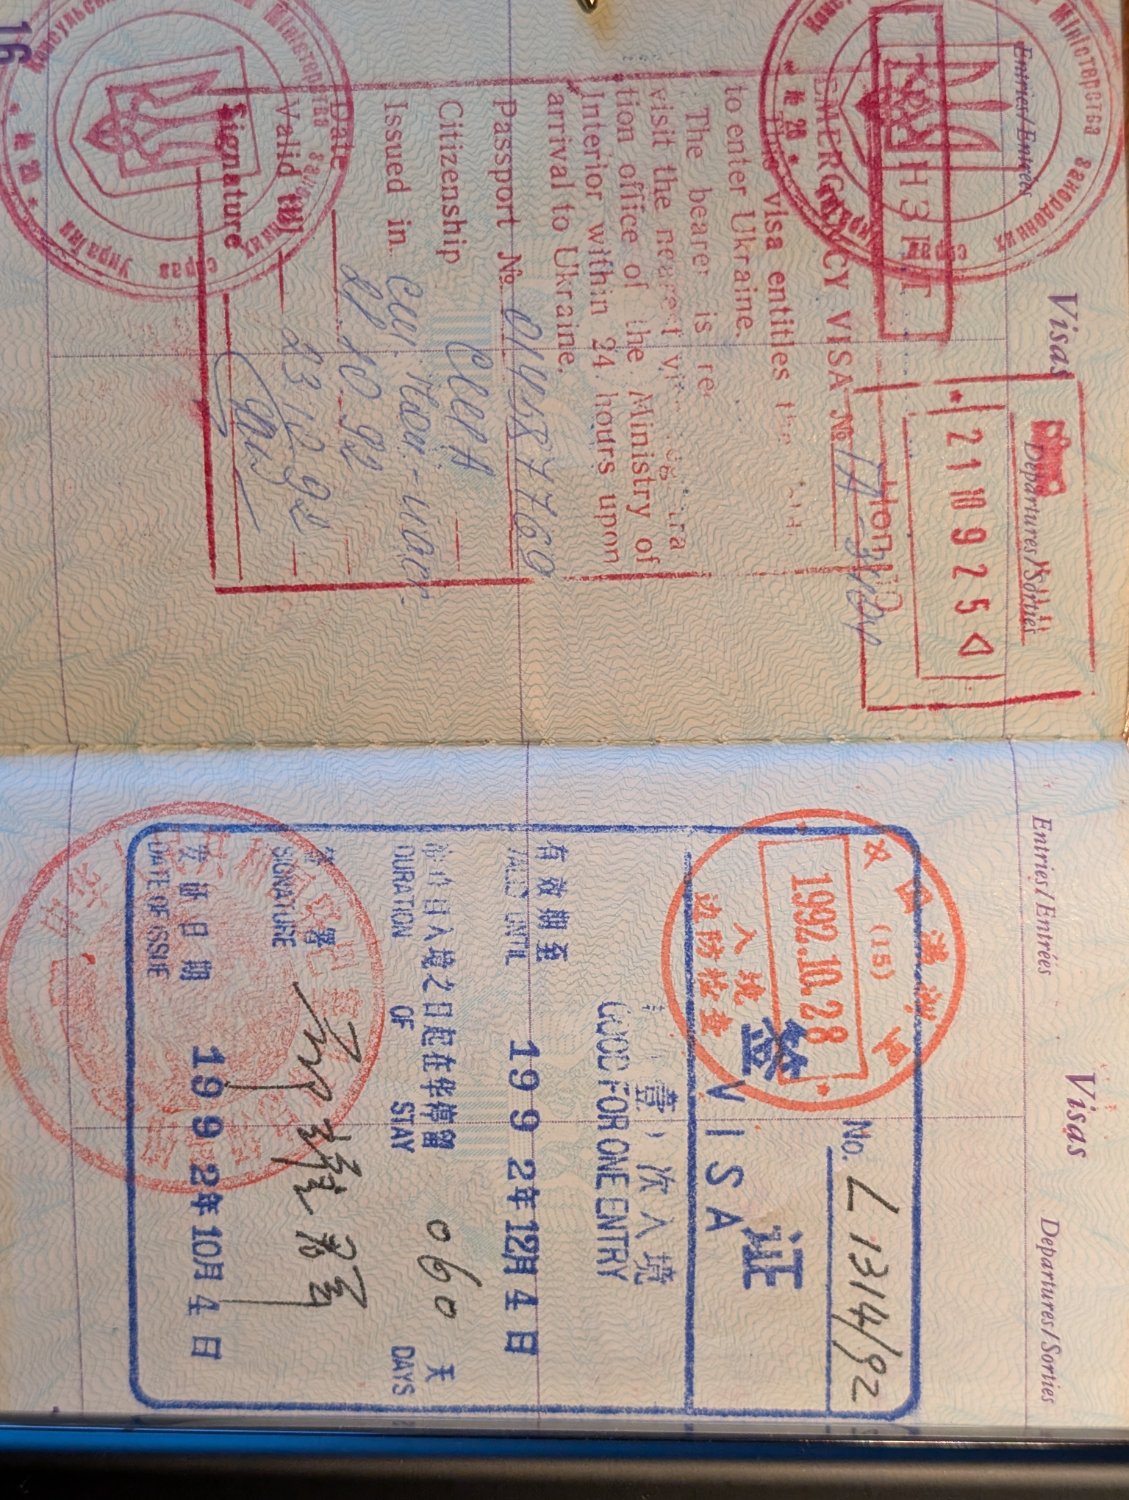 16
Visas
Entries/Entrées
Departures/Sorties
21 10 92 5
EMERGENCY VISA №
visa entitles
to enter Ukraine.
The bearer is re
visit the
tion office of the Ministry of
Interior within 24 hours upon
arrival to Ukraine.
Passport №
Citizenship США
Issued in
Date 21 10 92
Valid till 23 12 92
Signature
Міністерства закордонних справ
Україна
Міністерства закордонних справ
Visas
Entries/Entrées
Departures/Sorties
No. L 1314/92
签证
VISA
(15)
1992.10.28
入境
边防检查
(壹)次入境
GOOD FOR ONE ENTRY
有效期至 1992年12月4日
VALID UNTIL
自入境之日起在华停留 060 天
DURATION OF STAY DAYS
签署
SIGNATURE
发证日期 1992年10月4日
DATE OF ISSUE
中华